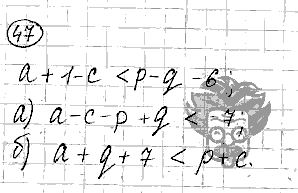 47
a + 1 - c < p - q - 6;
а) a - c - p + q < -7;
б) a + q + 7 < p + c.